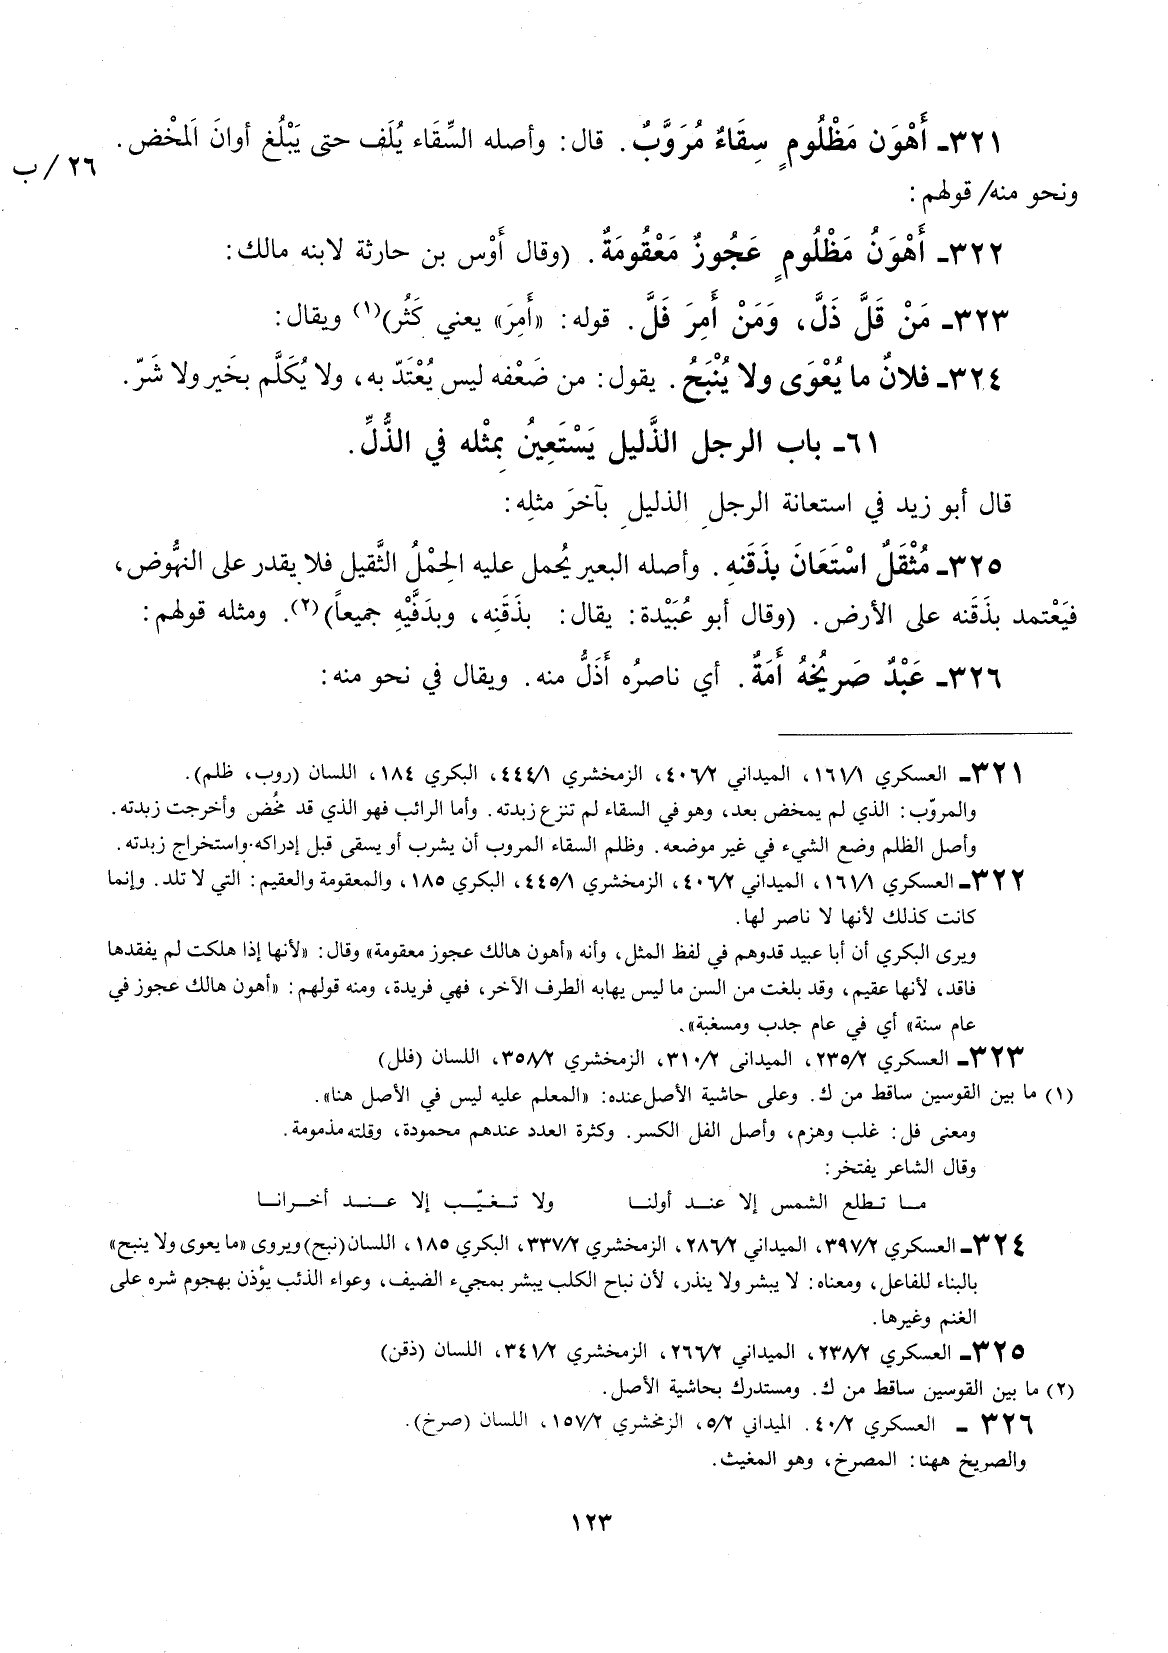 ٣٢١ـ أَهْوَن مَظْلُومٍ سِقَاءٌ مُرَوَّبٌ. قال: وأصله السِّقَاء يُلَف حتى يَبْلُغ أوانَ اَلمخْض.
٢٦/ب
ونحو منه/ قولهم:
٣٢٢ـ أَهْوَنُ مَظْلُومٍ عَجُوزٌ مَعْقُومَةٌ. (وقال أَوْس بن حارثة لابنه مالك:
٣٢٣ـ مَنْ قَلَّ ذَلَّ، وَمَنْ أَمِرَ فَلَّ. قوله: «أَمِرَ» يعني كَثُر)(١) ويقال:
٣٢٤ـ فلانٌ ما يُعْوَى ولا يُنْبَحُ. يقول: من ضَعْفه ليس يُعْتَدّ به، ولا يُكَلَّم بخَير ولا شَرّ.
٦١ـ باب الرجل الذَّليل يَسْتَعِينُ بِمثْله في الذُّلِّ.
قال أبو زيد في استعانة الرجلِ الذليلِ بآخرَ مثلِه:
٣٢٥ـ مُثْقَلٌ اسْتَعَانَ بذَقَنهِ. وأصله البعير يُحمل عليه الحِمْلُ الثَّقيل فلا يقدر على النهُّوض،
فيَعْتمد بذَقَنه على الأرض. (وقال أبو عُبَيْدة: يقال: بذَقَنِه، وبدَفَّيْهِ جميعاً)(٢). ومثله قولهم:
٣٢٦ـ عَبْدٌ صَرِيخُهُ أَمَةٌ. أي ناصرُه أَذَلُّ منه. ويقال في نحو منه:
٣٢١ـ العسكري ١٦١/١، الميداني ٤٠٦/٢، الزمخشري ٤٤٤/١، البكري ١٨٤، اللسان (روب، ظلم).
والمروّب: الذي لم يمخض بعد، وهو في السقاء لم تنزع زبدته. وأما الرائب فهو الذي قد مخُض وأخرجت زبدته.
وأصل الظلم وضع الشيء في غير موضعه. وظلم السقاء المروب أن يشرب أو يسقى قبل إدراكه واستخراج زبدته.
٣٢٢ـ العسكري ١٦١/١، الميداني ٤٠٦/٢، الزمخشري ٤٤٥/١، البكري ١٨٥، والمعقومة والعقيم: التي لا تلد. وإنما
كانت كذلك لأنها لا ناصر لها.
ويرى البكري أن أبا عبيد قدوهم في لفظ المثل، وأنه «أهون هالك عجوز معقومة» وقال: «لأنها إذا هلكت لم يفقدها
فاقد، لأنها عقيم، وقد بلغت من السن ما ليس يهابه الطرف الآخر، فهي فريدة، ومنه قولهم: «أهون هالك عجوز في
عام سنة» أي في عام جدب ومسغبة».
٣٢٣ـ العسكري ٢٣٥/٢، الميدانى ٣١٠/٢، الزمخشري ٣٥٨/٢، اللسان (فلل)
(١) ما بين القوسين ساقط من ك. وعلى حاشية الأصل عنده: «المعلم عليه ليس في الأصل هنا».
ومعنى فل: غلب وهزم، وأصل الفل الكسر. وكثرة العدد عندهم محمودة، وقلته مذمومة.
وقال الشاعر يفتخر:
مـا تـطلع الشمس إلا عنـد أولنـا ولا تـغيّـب إلا عـنـد أخـرانـا
٣٢٤ـ العسكري ٣٩٧/٢، الميداني ٢٨٦/٢، الزمخشري ٣٣٧/٢، البكري ١٨٥، اللسان (نبح) ويروى «ما يعوى ولا ينبح»
بالبناء للفاعل، ومعناه: لا يبشر ولا ينذر، لأن نباح الكلب يبشر بمجيء الضيف، وعواء الذئب يؤذن بهجوم شره على
الغنم وغيرها.
٣٢٥ـ العسكري ٢٣٨/٢، الميداني ٢٦٦/٢، الزمخشري ٣٤١/٢، اللسان (ذقن)
(٢) ما بين القوسين ساقط من ك. ومستدرك بحاشية الأصل.
٣٢٦ ـ العسكري ٤٠/٢. الميداني ٥/٢، الزمخشري ١٥٧/٢، اللسان (صرخ).
والصريخ ههنا: المصرخ، وهو المغيث.
١٢٣